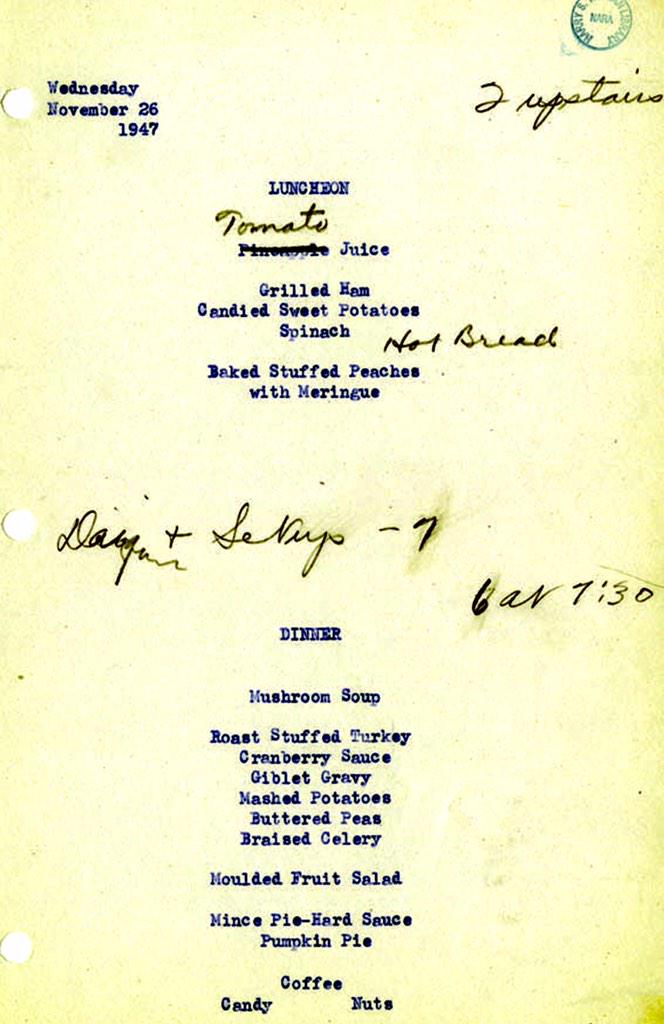 HARRY S. LIBRARY
NARA
Wednesday
November 26
1947
2 upstairs
LUNCHEON
Tomato
Pineapple Juice
Grilled Ham
Candied Sweet Potatoes
Spinach
Hot Bread
Baked Stuffed Peaches
with Meringue
+ SetUps - 7
6 at 7:30
DINNER
Mushroom Soup
Roast Stuffed Turkey
Cranberry Sauce
Giblet Gravy
Mashed Potatoes
Buttered Peas
Braised Celery
Moulded Fruit Salad
Mince Pie-Hard Sauce
Pumpkin Pie
Coffee
Candy Nuts